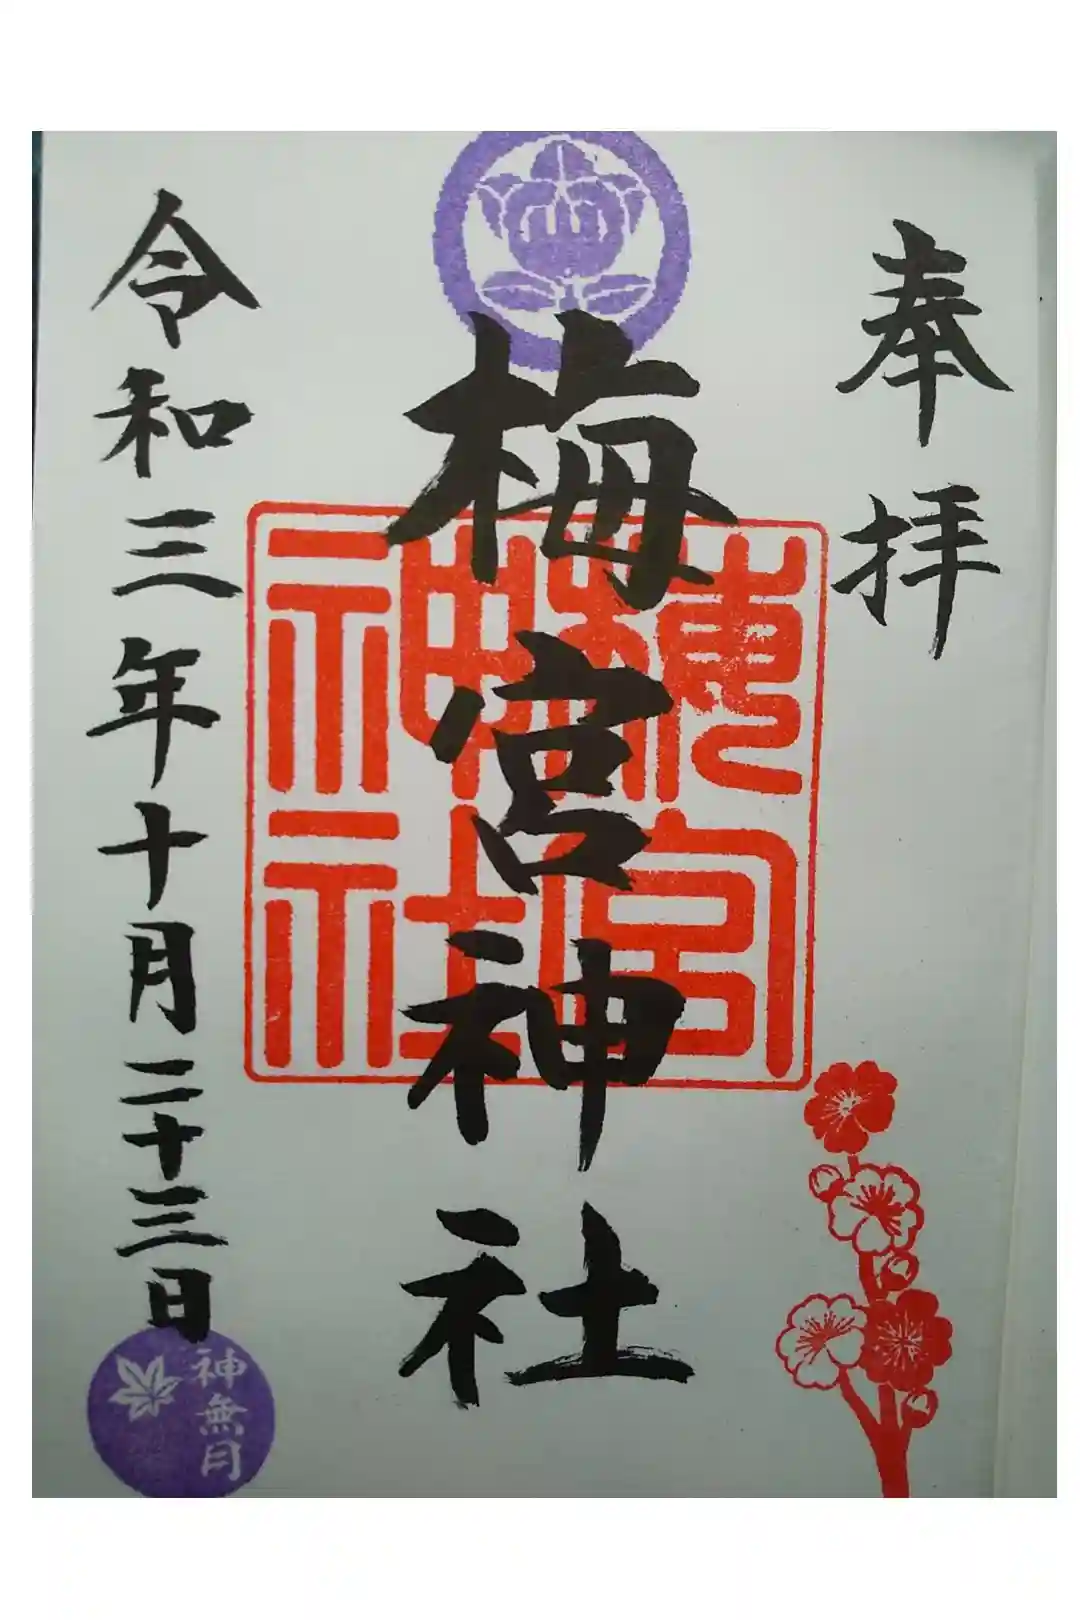 奉拝
梅宮神社
令和三年十月二十三日
神無月